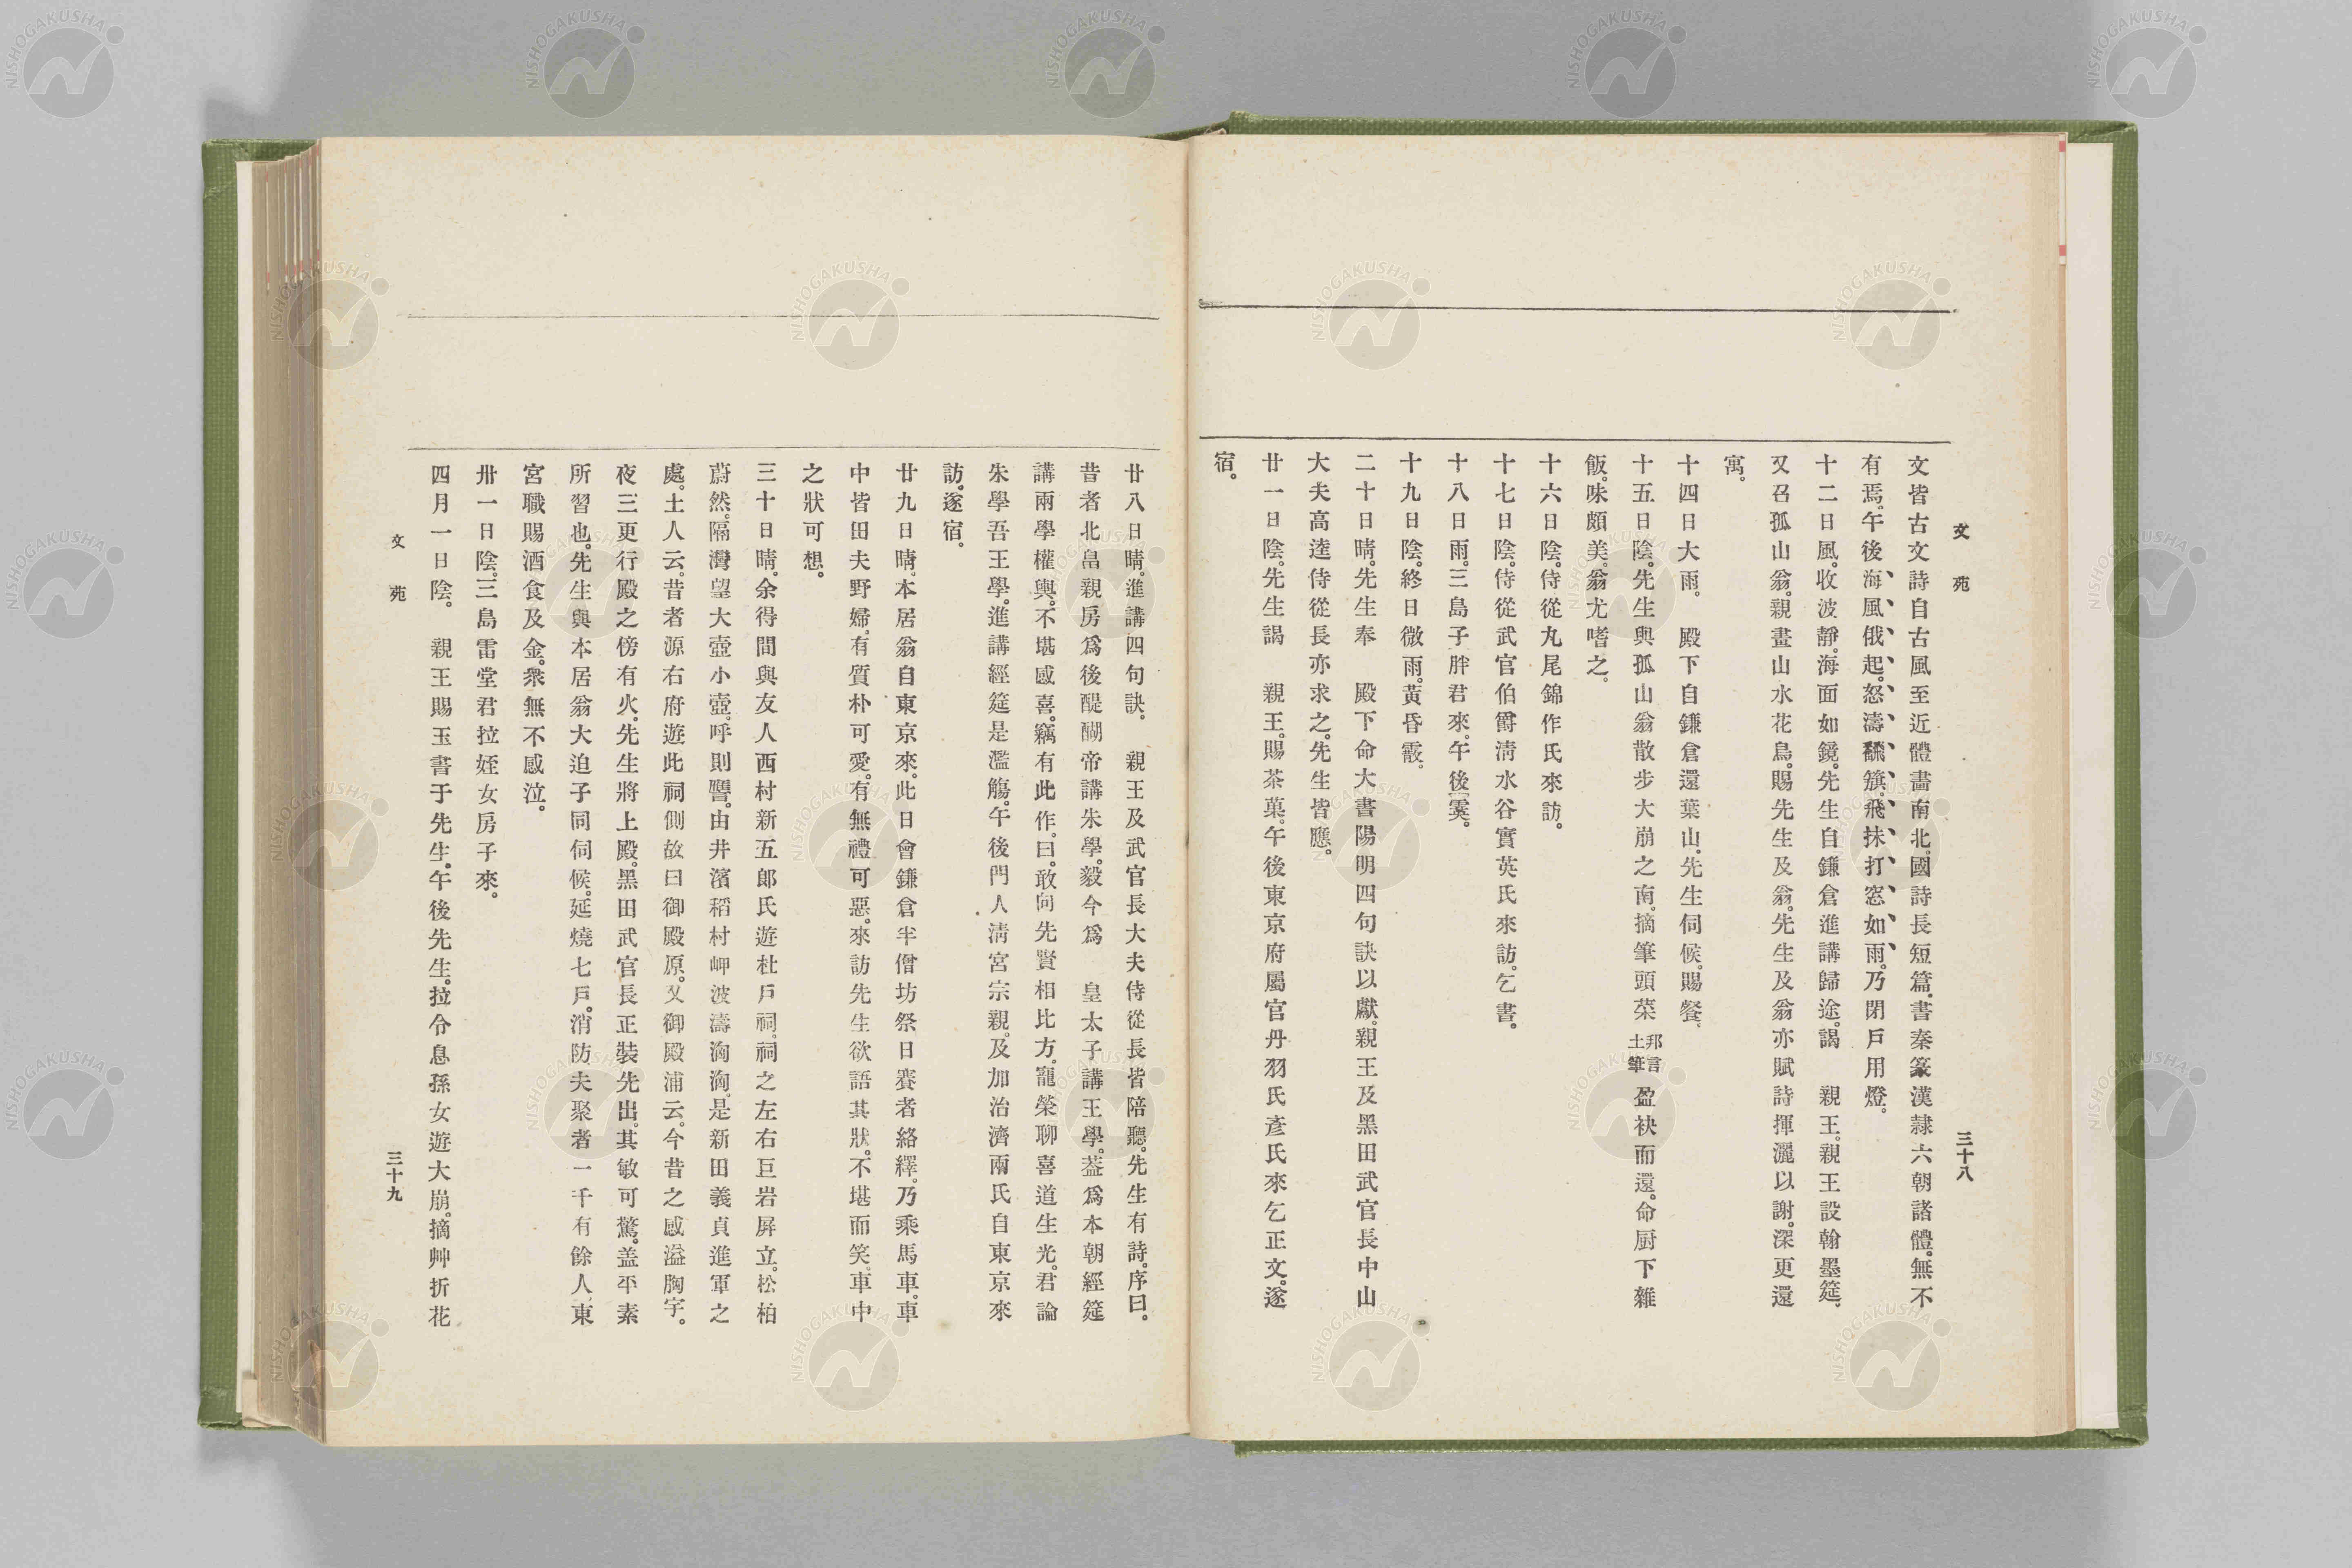 文苑
三十八
文皆古文詩自古風至近體畵南北。國詩長短篇。書秦篆漢隷六朝諸體。無不
有焉。午後海、風、俄、起。怒、濤、飜、簸、飛、抹、打、窓、如、雨。乃閉戶用燈。
十二日風。收波靜。海面如鏡。先生自鎌倉進講歸途。謁　親王。親王設翰墨筵、
又召孤山翁。親畫山水花鳥。賜先生及翁。先生及翁亦賦詩揮灑以謝。深更還
寓。
十四日大雨。　殿下自鎌倉還葉山。先生伺候。賜餐、
十五日陰。先生與孤山翁散步大崩之南。摘筆頭菜 邦言土筆 盈袂而還。命厨下雜
飯。味頗美。翁尤嗜之。
十六日陰。侍從丸尾錦作氏來訪。
十七日陰。侍從武官伯爵淸水谷實英氏來訪。乞書。
十八日雨。三島子胖君來。午後霙。
十九日陰。終日微雨。黃昏霰。
二十日晴。先生奉　殿下命大書陽明四句訣以獻。親王及黑田武官長中山
大夫高逵侍從長亦求之。先生皆應。
廿一日陰。先生謁　親王。賜茶菓。午後東京府屬官丹羽氏彥氏來乞正文。遂
宿。
廿八日晴。進講四句訣。　親王及武官長大夫侍從長皆陪聽。先生有詩。序曰。
昔者北畠親房爲後醍醐帝講朱學。毅今爲　皇太子講王學。葢爲本朝經筵
講兩學權輿。不堪感喜。竊有此作。曰。敢向先賢相比方。寵榮聊喜道生光。君論
朱學吾王學。進講經筵是濫觴。午後門人淸宮宗親。及加治濟兩氏自東京來
訪。遂宿。
廿九日晴。本居翁自東京來。此日會鎌倉半僧坊祭日賽者絡繹。乃乘馬車。車
中皆田夫野婦。有質朴可愛。有無禮可惡。來訪先生欲語其狀。不堪而笑。車中
之狀可想。
三十日晴。余得間與友人西村新五郎氏遊杜戶祠。祠之左右巨岩屛立。松柏
蔚然。隔灣望大壼小壼。呼則譍。由井濱稻村岬波濤洶洶。是新田義貞進軍之
處。土人云。昔者源右府遊此祠側故曰御殿原。又御殿浦云。今昔之感溢胸宇。
夜三更行殿之傍有火。先生將上殿。黑田武官長正裝先出。其敏可驚。盖平素
所習也。先生與本居翁大迫子同伺候。延燒七戶。消防夫聚者一千有餘人、東
宮職賜酒食及金。衆無不感泣。
卅一日陰。三島雷堂君拉姪女房子來。
四月一日陰。　親王賜玉書于先生。午後先生。拉令息孫女遊大崩。摘艸折花
文苑
三十九
NISHOGAKUSHA